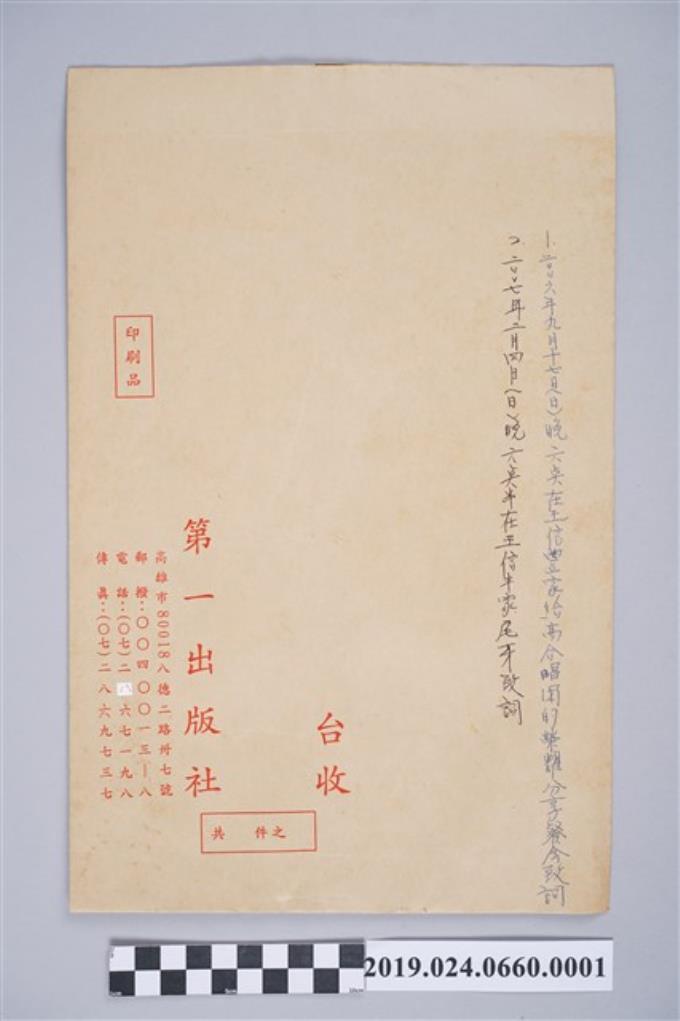 1.二〇〇六年九月十七日(日)晚六点在王信豐家給高合唱團的榮耀分享餐会致詞
2.二〇〇七年二月四日(日)晚六点半在王信丰家尾牙致詞
台收
印刷品
第一出版社
高雄市80018八德二路卅七號
郵撥：〇〇四〇〇一三—八
電話：(〇七)二八六七一九八
傳真：(〇七)二八六九七三七
共 件之
2019.024.0660.0001